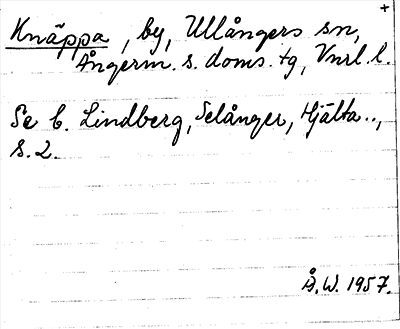 +
Knäppa, by, Ullångers sn,
Ångerm. s. doms. tg, Vnrl. l.
Se C. Lindberg, Selånger, Hjälta..,
s. 2.
Å.W. 1957.